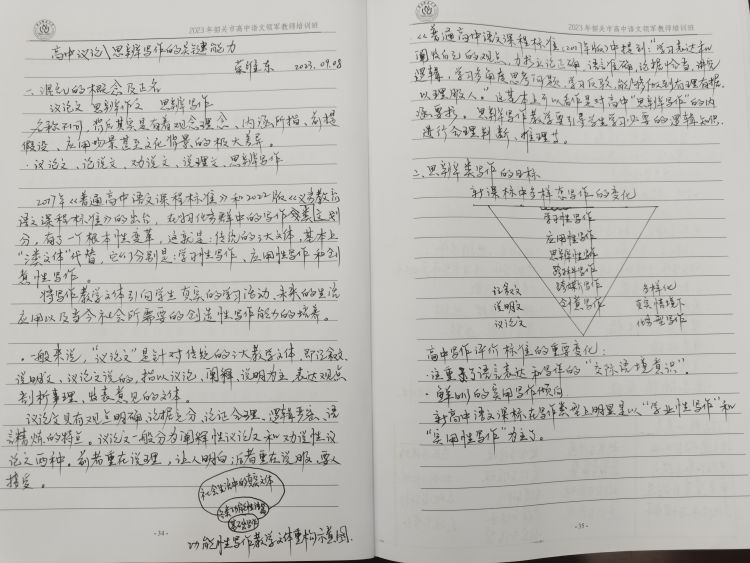 2023年韶关市高中语文领军教师培训班
高中议论\思辨写作的关键能力
2023.09.08
一、混乱的概念及正名
议论文 思辨作文 思辨写作
名称不同,背后其实是有着观念理念、内涵所指、前提
假设、应用场景甚至文化背景的极大差异。
·议论文、论说文、劝说文、说理文、思辨写作
2017年《普通高中语文课程标准》和2022版《义务教育
语文课程标准》的出台,在我们传统中的写作分类划
分,有了一个根本性变革,这就是:传统的三大文体,基本上
“三类文体”代替,它们分别是:学习性写作、应用性写作和创
意性写作。
将写作教学文体引向学生真实的学习活动、未来的生活
应用以及当今社会所需要的创造性写作能力的培养。
·一般来说,“议论文”是针对传统的三大教学文体,即记叙文、
说明文、议论文说的,指以议论、阐释、说明为主,表达观点
剖析事理,发表意见的文体。
议论文具有观点明确、论据充分、论证合理、逻辑严密、语
言精炼的特点。议论文一般分为阐释性议论文和劝说性议
论文两种。前者重在说理,让人明白;后者重在说服,要人
接受。
社会生活中的真实文体
三类功能性写作
基础写作
功能性写作教学文体重构示意图.
-34-
2023年韶关市高中语文领军教师培训班
《普通高中语文课程标准(2017年版)》中提到:“学习表达和
阐发自己的观点,力求立论正确,语言准确,论据恰当,讲究
逻辑,学习多角度思考问题,学习反驳,能够做到有理有据,
以理服人。”这基本上可以看作是对高中“思辨写作”的内
涵要求。思辨写作教学要引导学生学习必要的逻辑知识,
进行合理判断、推理等。
二、思辨类写作的目标
新课标中多样态写作的变化
学习性写作
应用性写作
思辨性写作
跨学科写作
记叙文 跨媒介写作 多样化
说明文 创意写作 真实情境下
议论文 任务型写作
高中写作评价标准的重要变化:
·注重了语言表达和写作的“交际语境意识”。
·鲜明的实用写作倾向
新高中语文课标在写作类型上明显是以“学业性写作”和
“实用性写作”为主了。
-35-